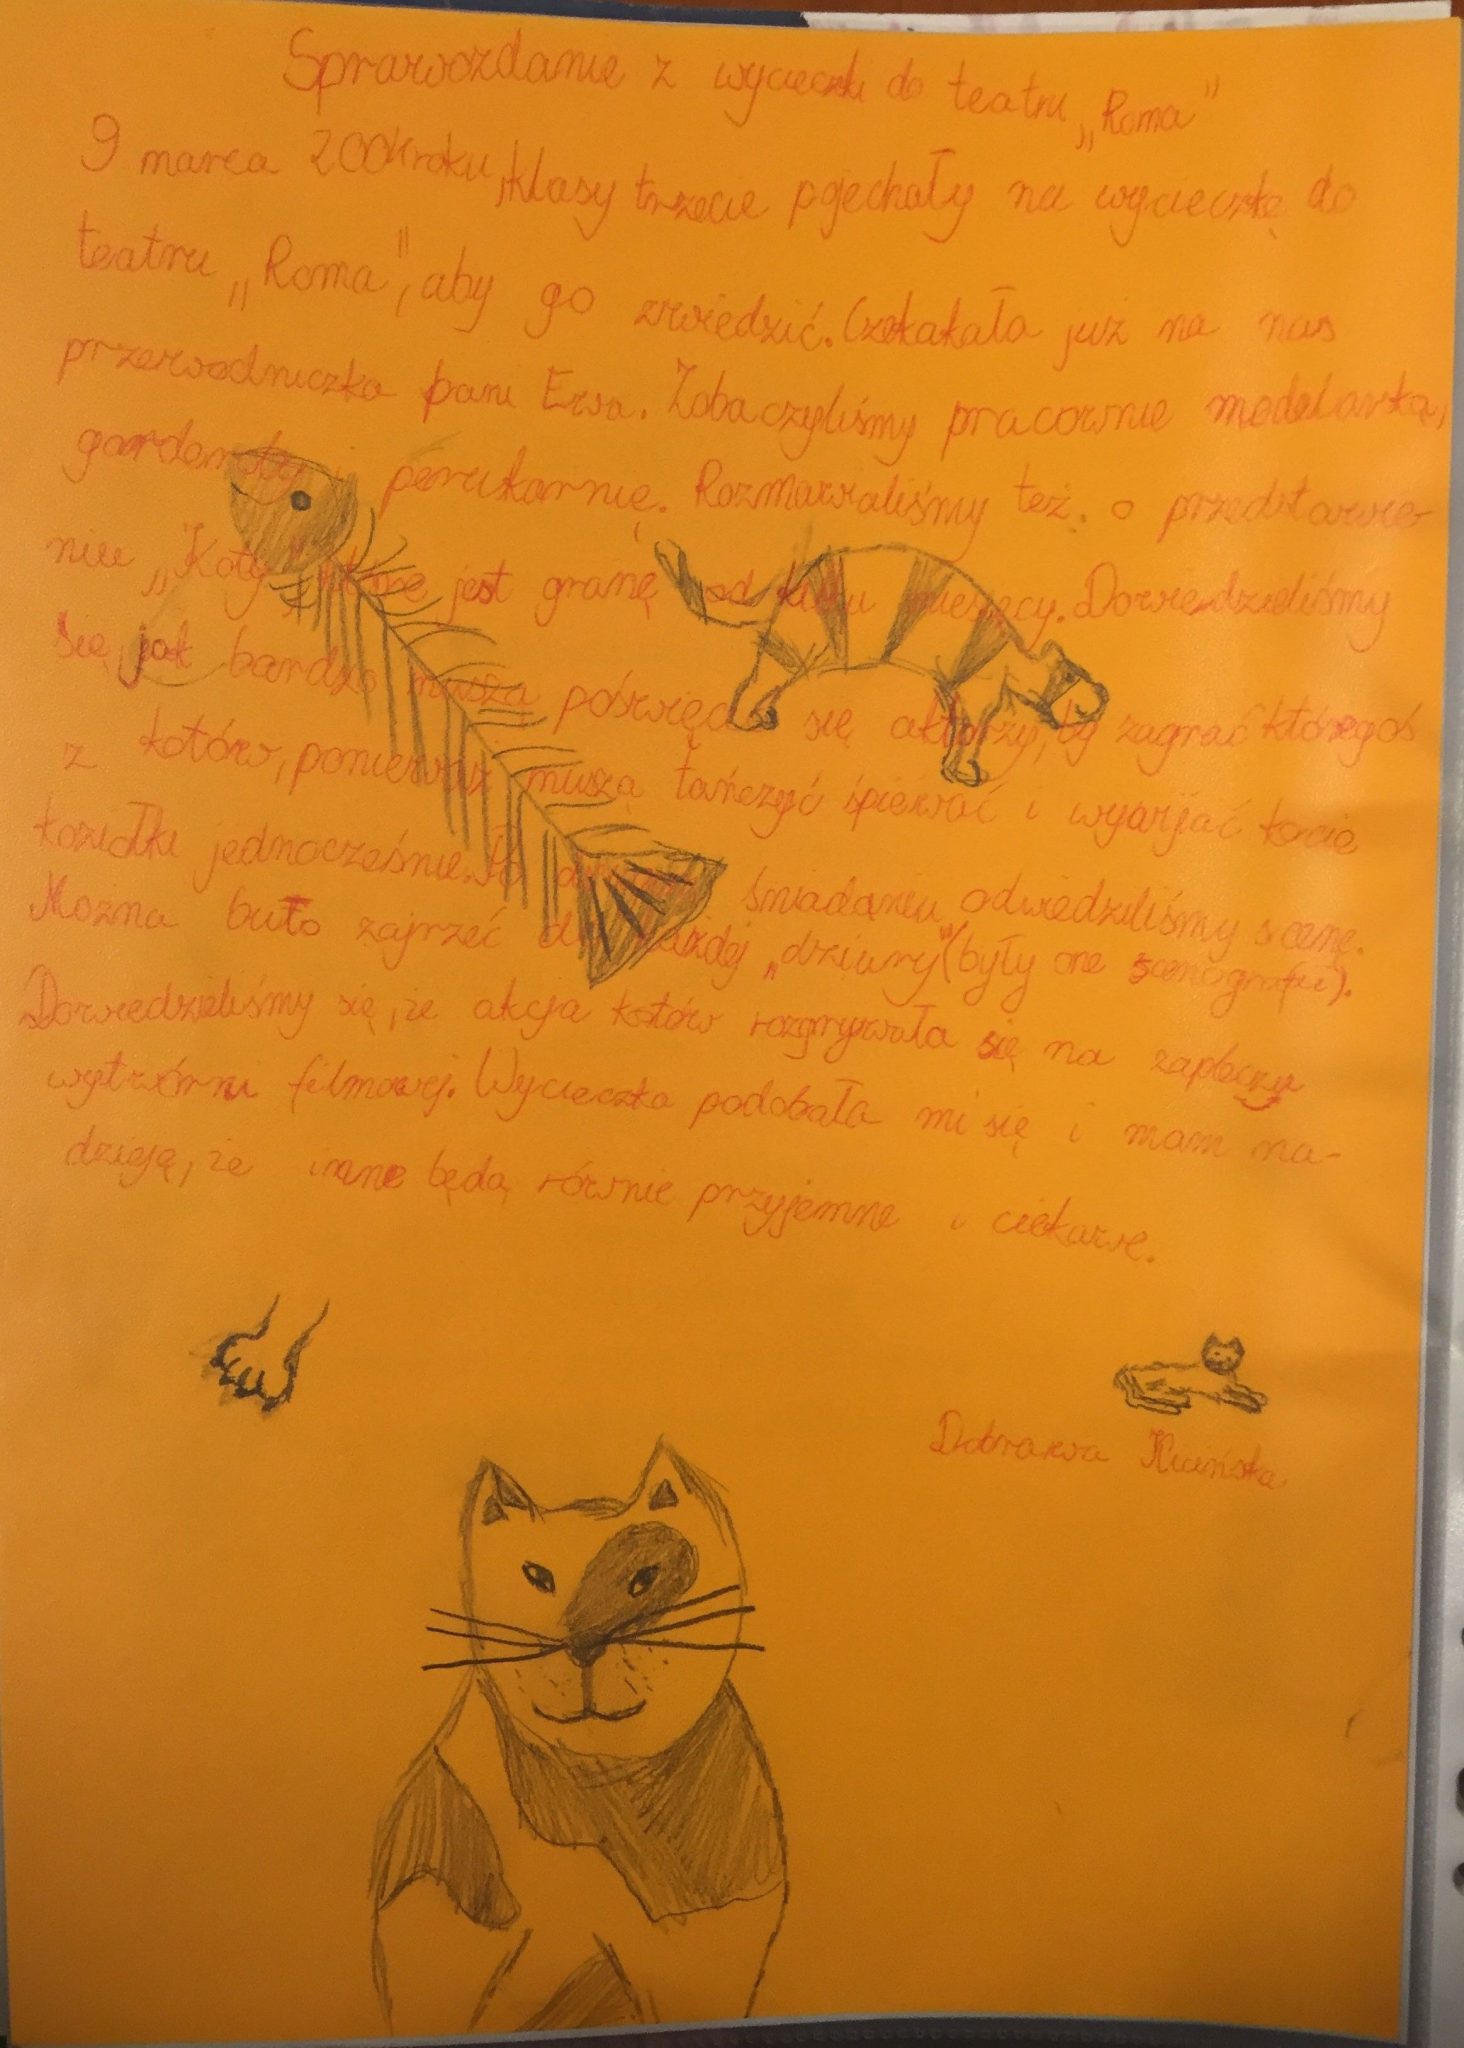 Sprawozdanie z wycieczki do teatru „Roma"
9 marca 2004 roku, klasy trzecie pojechały na wycieczkę do
teatru „Roma", aby go zwiedzić. Czekakała już na nas
przewodniczka pani Ewa. Zobaczyliśmy pracownie modelarską,
garderoby i perukarnię. Rozmawialiśmy też o przedstawie-
niu „Koty", które jest granę od kilku miesięcy. Dowiedzieliśmy
się, jak bardzo muszą poświęcać się aktorzy, by zagrać któregoś
z kotów, ponieważ muszą tańczyć śpiewać i wywijać kocie
koziołki jednocześnie. Po śniadaniu odwiedziliśmy scenę.
Można było zajrzeć do każdej „dziury" (były one scenografii).
Dowiedzieliśmy się, że akcja kotów rozgrywała się na zapleczy
wytwórni filmowej. Wycieczka podobała mi się i mam na-
dzieją, że inne będą równie przyjemne i ciekawe.
Dobrawa Kicińska